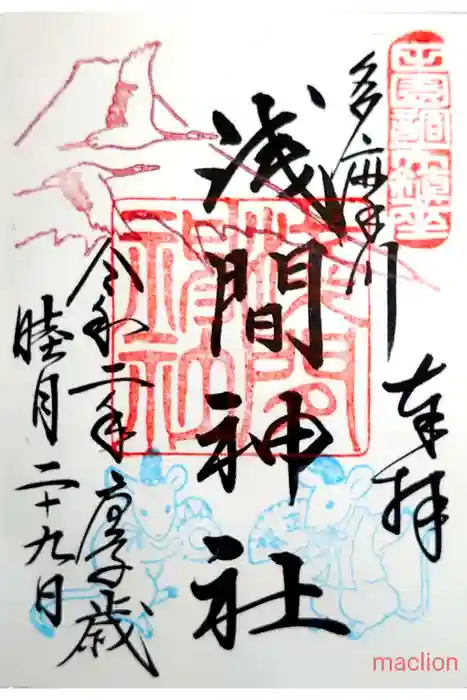 多摩川
奉拝
浅間神社
令和二年 庚子歳
睦月二十九日
maclion